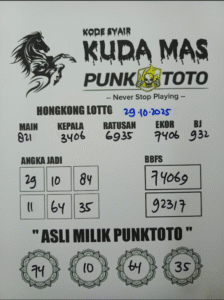 KODE SYAIR
KUDA MAS
PUNK TOTO
– Never Stop Playing –
HONGKONG LOTTO 29-10-2025
MAIN KEPALA RATUSAN EKOR BJ
821 3406 6935 7406 932
ANGKA JADI BBFS
29 10 84 74069
11 64 35 92317
" ASLI MILIK PUNKTOTO "
74 10 64 35